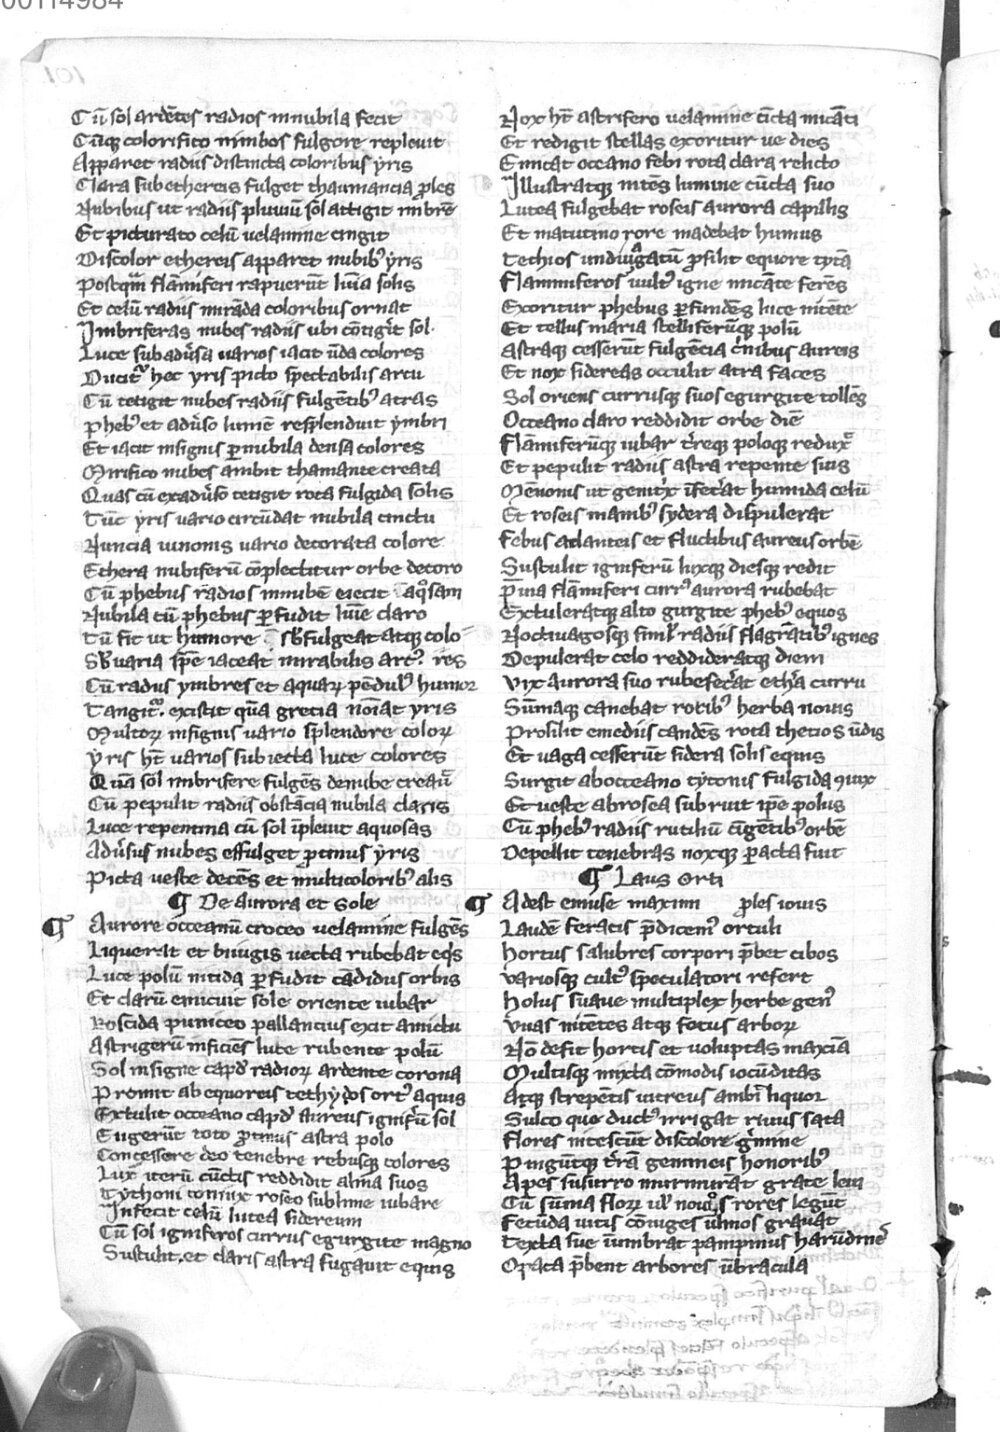 00114984
101
Cū sol ardētes radios in nubila fecit
Cūqꝫ colorifico nimbos fulgore repleuit
Apparet radiis distincta coloribus yris
Clara sub ethereis fulget thaumancia ꝓles
Nubibus ut radiis pluuiū sol attigit imbrē
Et picturato celū uelamine cingit
Discolor ethereis apparet nubibꝰ yris
Postqm̄ flāmiferi rapuerūt lumīa solis
Et celū radiis mirāda coloribus ornat
Imbriferas nubes radiis ubi cōtigit sol
Luce sub aduersa uarios iacit ūda colores
Ducitᷣ hec yris picto spectabilis arcu
Cū tetigit nubes radiis fulgētibꝰ atras
phebꝰ et aduerso lumē resplenduit ymbri
Et iacit insignis ꝑ nubila densa colores
Mirifico nubes ambit thamante creata
Quas cū ex aduerso tetigit rota fulgida solis
Tūc yris uario circūdat nubila cinctu
Nuncia iunonis uario decorata colore
Ethera nubiferū cōplectitur orbe decoro
Cū phebus radios in nubē eiecit aquosam
Nubila cū phebus ꝑfudit lumīe claro
Tū fit ut humore sb̄fulgeat atqꝫ colo
Sb̄ uaria spē iaceat mirabilis arcꝰ res
Cū radius ymbres et aquaꝝ pēdulꝰ humor
Tangitᷣ existit quā grecia noīat yris
Multoꝝ insignis uario splendore coloꝝ
Yris ht̄ varios subiecta luce colores
Quā sol imbrifere fulgēs de nube creauit
Cū pepulit radiis obstācia nubila claris
Luce repentina cū sol īpleuit aquosas
Aduersus nubes effulget ꝓtinus yris
Picta ueste decēs et multicoloribꝰ alis
¶ De aurora et Sole
¶ Aurore occeanū croceo uelamine fulgēs
Liquerat et biiugis uecta rubebat eqͥs
Luce polū nitida ꝑfudit cādidus orbis
Et clarū emicuit sole oriente iubar
Roscida puniceo pallancius exit amictu
Astrigerū inficiēs luce rubente polū
Sol insigne capud radioꝝ ardente corona
Promit ab equoreis tethydos ortꝰ aquis
Extulit occeano capud aureus ignifer sol
Fugerūt toto ꝓtinus astra polo
Concessere deo tenebre rebusqꝫ colores
Lux iterū cūctis reddidit alma suos
Tythoni coniux roseo sublime iubare
Infecit celū lutea sidereum
Cū sol igniferos currus e gurgite magno
Sustulit et claris astra fugauit equis
Nox ht̄ astrifero uelamine cūcta micāti
Et redigit stellas exoritur ue dies
Emicat oceano febi rota clara relicto
Illustratqꝫ nitēs lumine cūcta suo
Lutea fulgebat roseis aurora capillis
Et matutino rore madebat humus
Techios undiuagatū ꝓsilit equore tytā
Flammiferos uultꝰ igne micāte ferēs
Exoritur phebus ꝑfundēs luce nitēte
Et tellus maria stelliferūqꝫ polū
Astraqꝫ cesserūt fulgēcia crinibus aureis
Et nox sidereas occulit atra faces
Sol oriens currusqꝫ suos e gurgite tollēs
Occeano claro reddidit orbe diē
Flāmiferūqꝫ iubar terreqꝫ poloqꝫ reduxᷣ
Et pepulit radiis astra repente suis
Mēnonis ut genitrix īfecerat humida celū
Et roseis manibꝰ sydera dispulerat
Febus adanteis et fluctibus aureus orbē
Sustulit igniferū luxqꝫ diesqꝫ redit
Prima flāmiferi currꝰ aurora rubebat
Extuleratqꝫ alto gurgite phebꝰ equos
Noctiuagosqꝫ simul radiis flagrātibꝰ ignes
Depulerat celo reddideratqꝫ diem
Vix aurora suo rubefecerat ethera curru
Sūmaqꝫ canebat roribꝰ herba nouis
Prosilit e mediis candēs rota thetios ūdis
Et uaga cesserūt sidera solis equis
Surgit ab occeano tytonis fulgida ꝯiux
Et ueste a rosea subruit ipse polus
Cū phebꝰ radiis rutilū cīgētibꝰ orbē
Depellit tenebras noxqꝫ peracta fuit
¶ Laus Orti
¶ Adest emuse maximi ꝓles iouis
Laudē feracis predicemꝰ ortuli
Hortus salubres corpori prebet cibos
Variosqꝫ cultꝰ speculatori refert
Holus suaue multiplex herbe genꝰ
Vuas nitētes atqꝫ fetus arboꝝ
Nō desit hortis et uoluptas maxima
Multisqꝫ mixta cōmodis iocūditas
Atqꝫ strepētis uitreus ambit liquor
Sulco quo ductꝰ irrigat riuus sata
Flores nitescūt discolore germine
Pinguntqꝫ terrā gemmeis honoribꝰ
Apes susurro murmurāt grate leui
Cū sūma floꝝ uel nouos rores legūt
Fecūda uitis cōiuges ulmos grauat
Texta sue īumbrat pampinus harudine
Opaca prebent arbores ūbracula